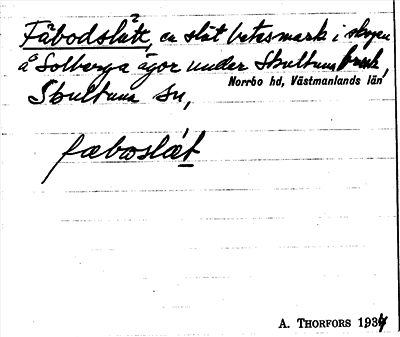 Fäbodslät, en slät betesmark i skogen
å Solberga ägor under Skultuna bruk,
Norrbo hd, Västmanlands län
Skultuna sn,
fæboslæt
A. THORFORS 1934